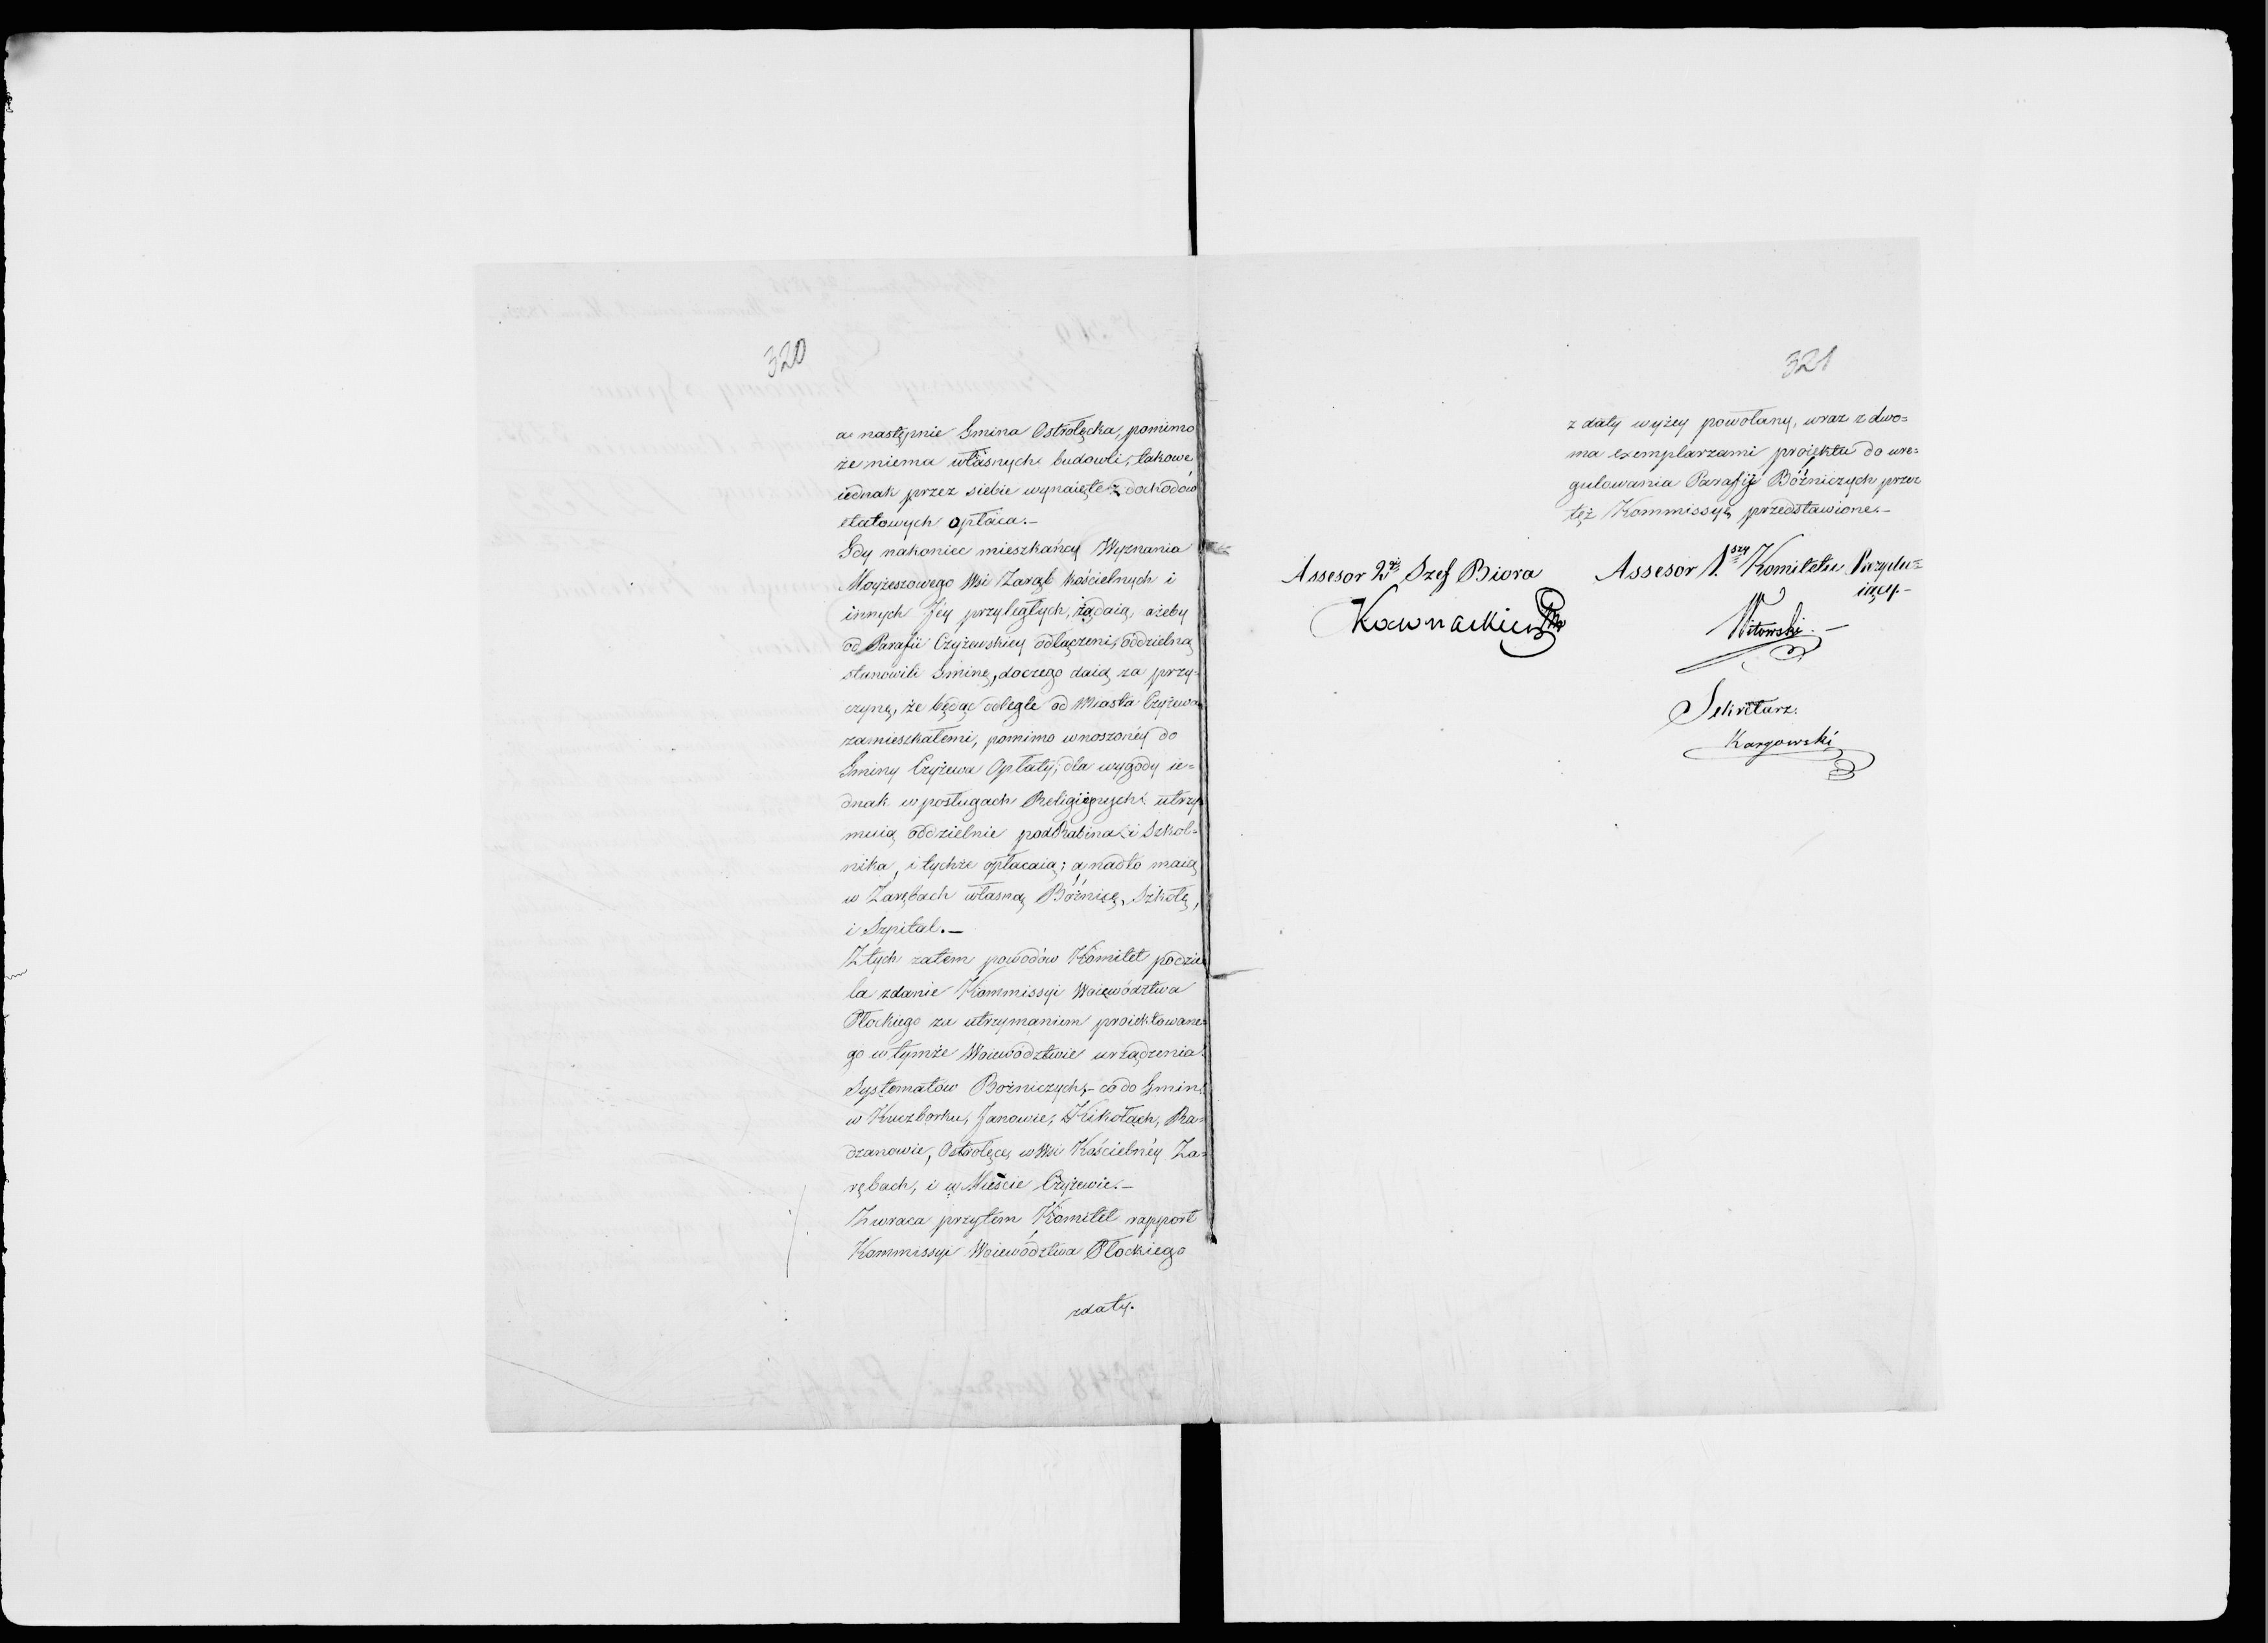 320
a następnie Gmina Ostrołęcka, pomimo
że niema własnych budowli, takowe
iednak przez siebie wynaięte z dochodów
etatowych opłaca.-
Gdy nakoniec mieszkańcy Wyznania
Moyżeszowego Wsi Zaręb Kościelnych i
innych Jéy przyległych, żądaią, ażeby
od Parafii Czyżewskiey odłączeni, oddzielną
stanowili Gminę, do czego daią za przy-
czynę, że będąc odlegle od Miasta Czyżewa
zamieszkałemi, pomimo wnoszonéy do
Gminy Czyżewa Opłaty; dla wygody ie=
dnak w posługach Religiynych utrzy
muią oddzielnie podRabina i Szkol=
nika, i tychże opłacaią; a nadto maią
w Zarębach własną Bóżnicę, Szkołę,
i Szpital.-
Z tych zatem powodów Komitet podzie
la zdanie Kommissyi Woiewództwa
Płockiego za utrzymaniem proiektowane=
go w tymże Woiewództwie urządzenia
Systematów Bożniczych,- co do Gmin
w Kuczborku, Janowie, Kikołach, Ra=
dzanowie, Ostrołęce, w Wsi Kościelnéy Za=
rębach, i w Mieście Czyżewie.-
Zwraca przytem Komitet rapport
Kommissyi Woiewództwa Płockiego
z daty.
321
z daty wyżey powołany, wraz z dwo=
ma exemplarzami proiektu do ure=
gulowania Parafij Bóżniczych przez
też Kommissyę przedstawione.-
Assesor 2gi Szef Biora
Assesor 1szy Komitetu Prezydu=
iący.-
Witowski.-
Sekretarz.